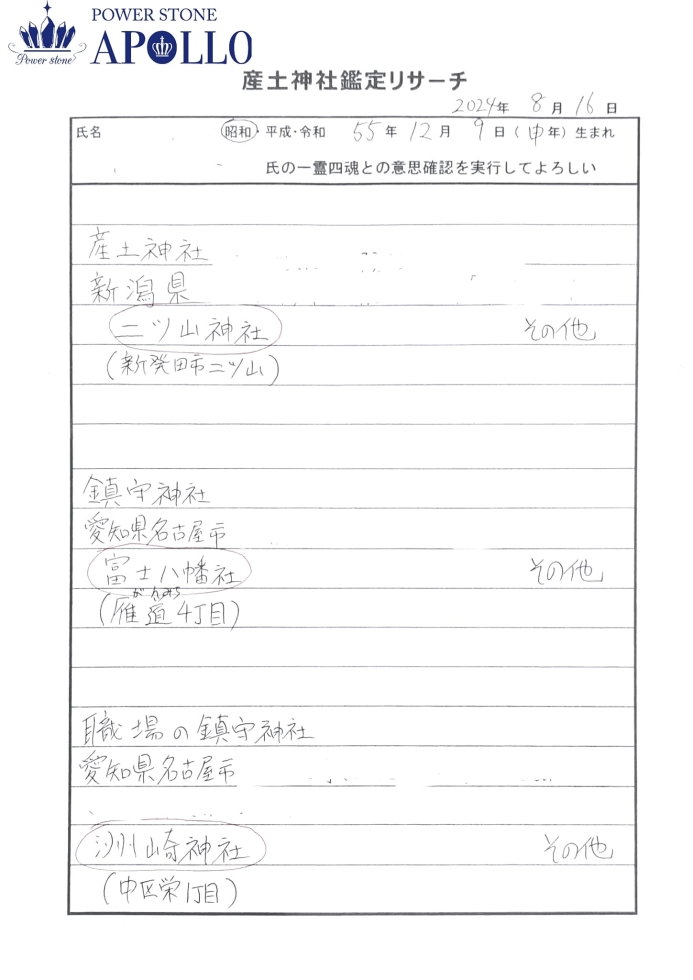 POWER STONE
APOLLO
Power stone
産土神社鑑定リサーチ
2024年 8月 16日
氏名 昭和・平成・令和 55年 12月 9日(申年)生まれ
氏の一霊四魂との意思確認を実行してよろしい
産土神社
新潟県
二ツ山神社 その他
(新発田市二ツ山)
鎮守神社
愛知県名古屋市
富士八幡社 その他
がんみち
(雁道4丁目)
職場の鎮守神社
愛知県名古屋市
洲崎神社 その他
(中区栄1丁目)